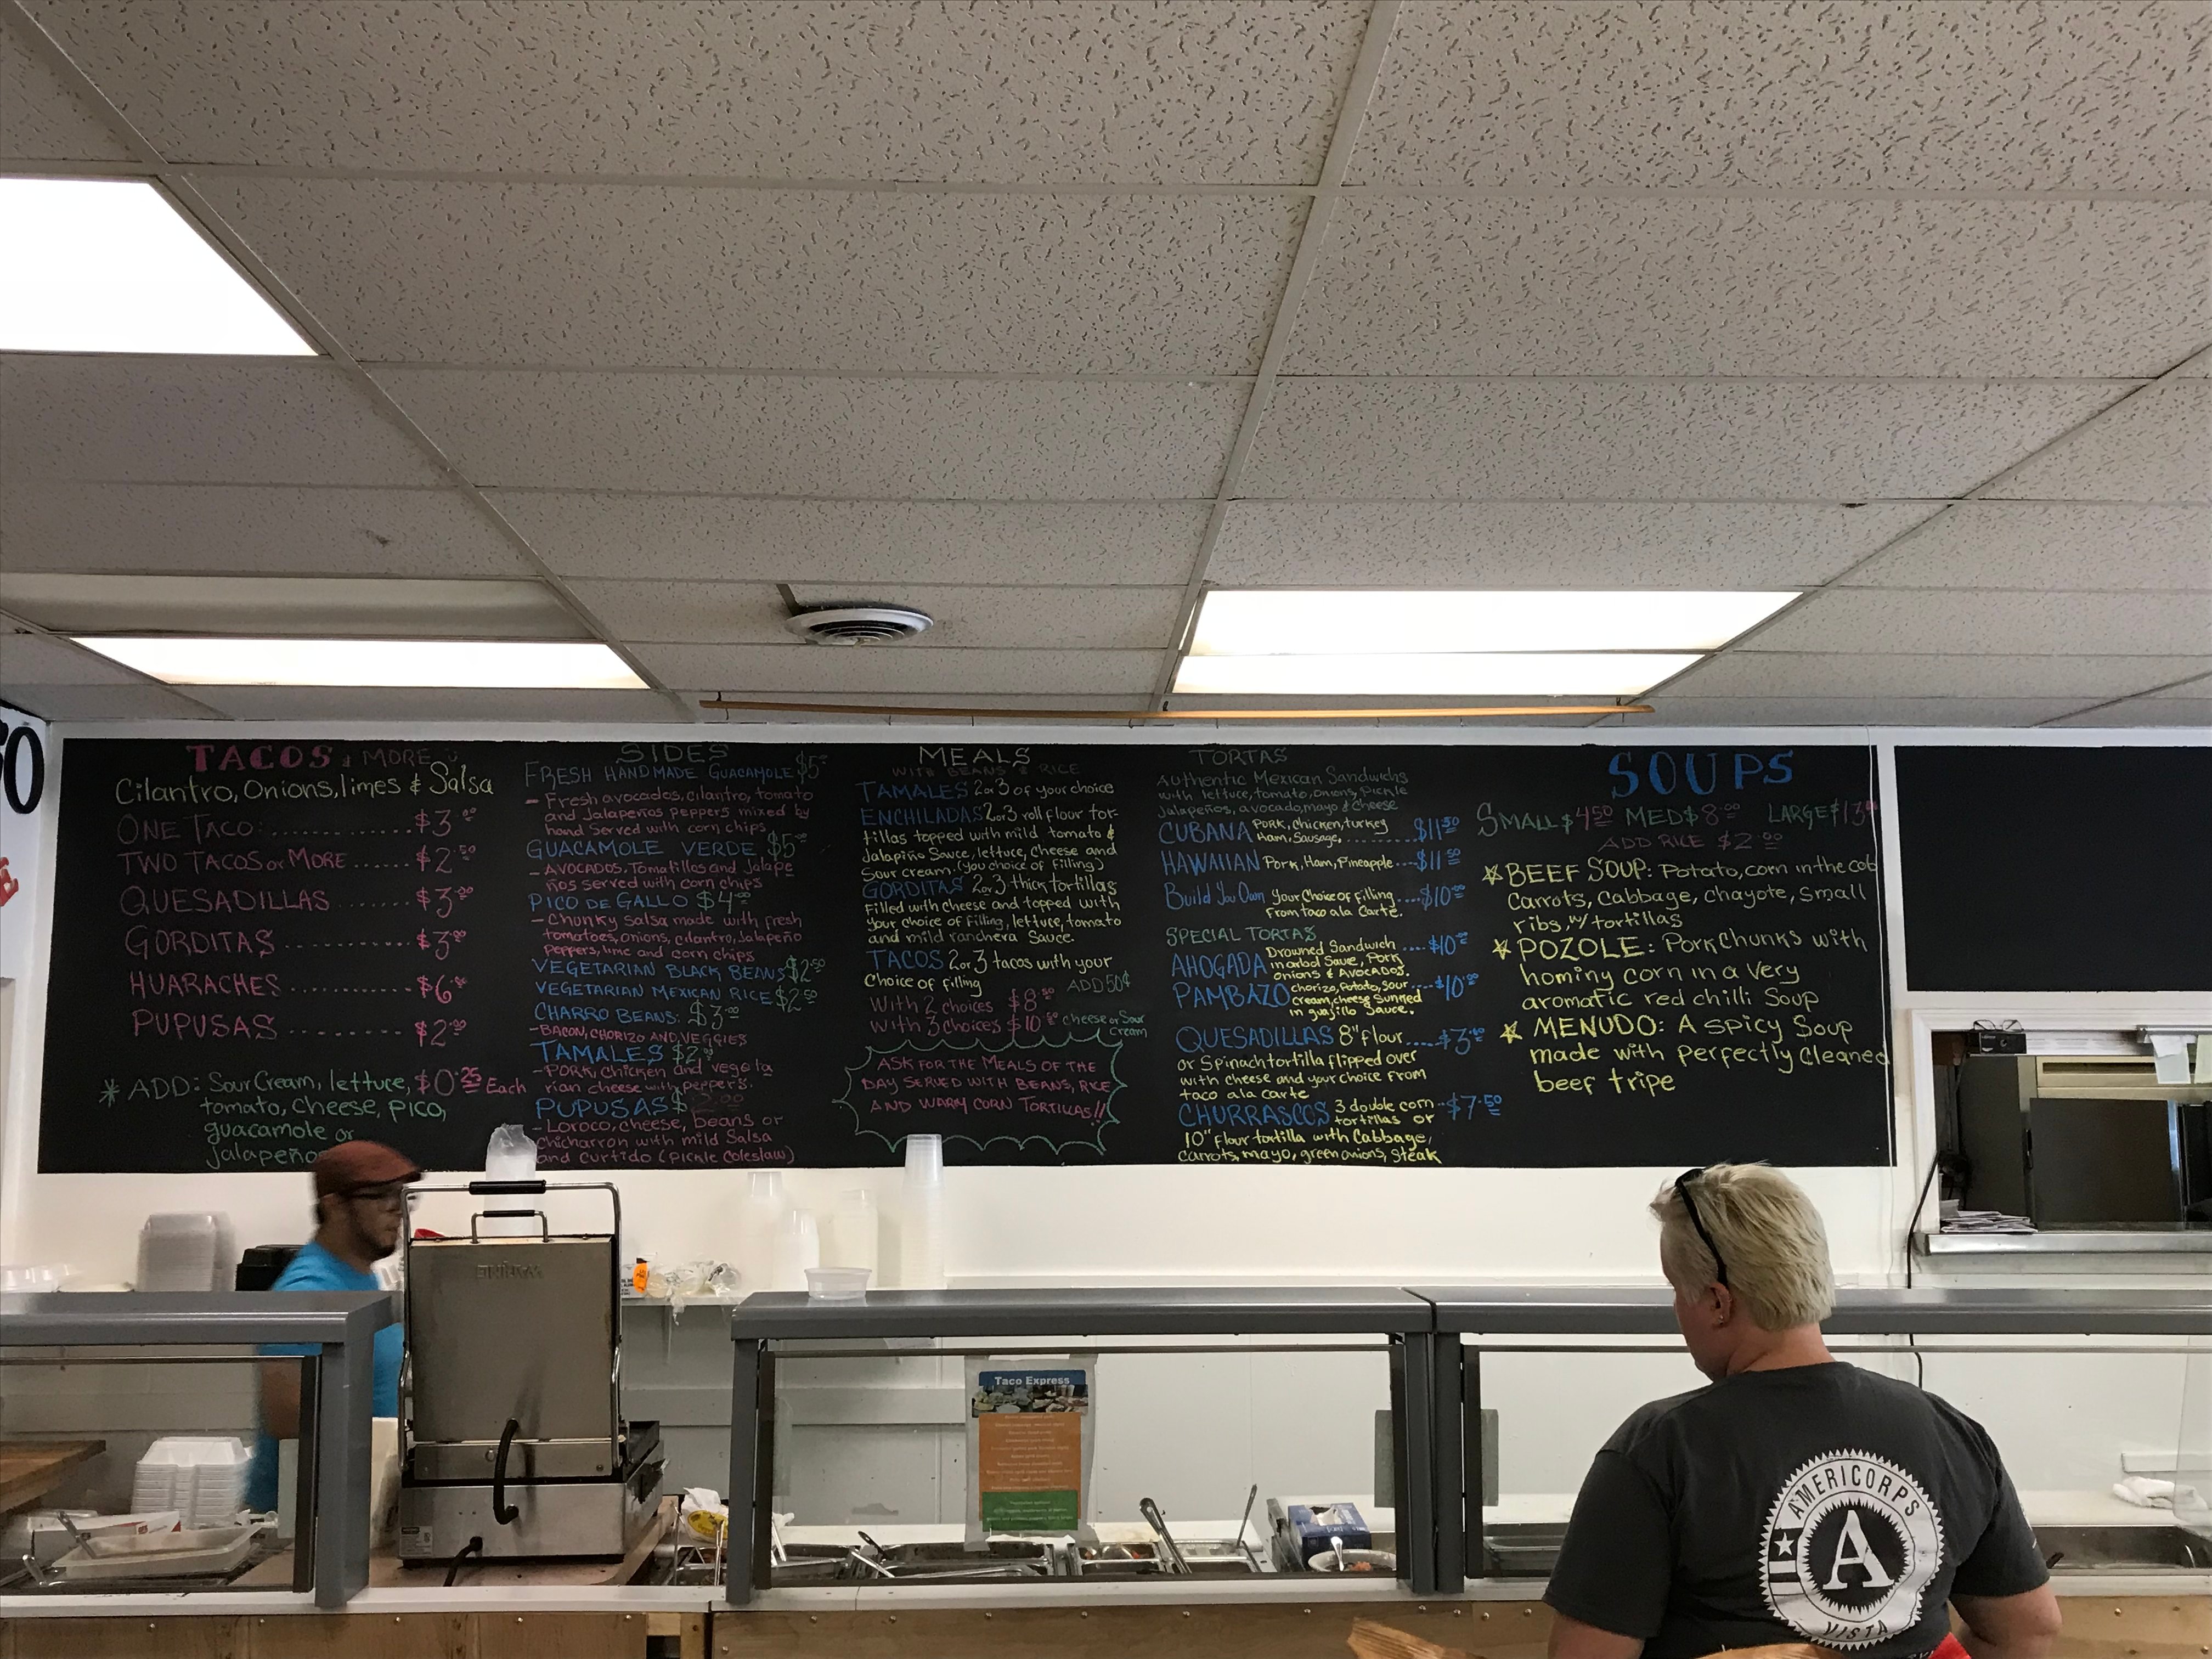 TACOS & MORE
Cilantro, Onions, limes & Salsa
ONE TACO: ............. $3.00
TWO TACOS or MORE ...... $2.50
QUESADILLAS ........ $3.00
GORDITAS ............ $3.00
HUARACHES ........... $6.00
PUPUSAS ........... $2.00
* ADD: Sour Cream, lettuce, $0.25 Each
tomato, cheese, pico,
guacamole or
jalapeños
SIDES
FRESH HANDMADE GUACAMOLE $5.00
- Fresh avocados, cilantro, tomato
and Jalapeños peppers mixed by
hand served with corn chips
GUACAMOLE VERDE $5.00
- AVOCADOS, Tomatillos and Jalape
ños served with corn chips
PICO DE GALLO $4.00
- Chunky salsa made with fresh
tomatoes, onions, cilantro, Jalapeño
Peppers, lime and corn chips
VEGETARIAN BLACK BEANS $2.50
VEGETARIAN MEXICAN RICE $2.50
CHARRO BEANS: $3.00
-BACON, CHORIZO AND VEGGIES
TAMALES $2.
-PORK, chicken and vegeta
rian cheese with peppers.
PUPUSAS $2.00
-Loroco, cheese, beans or
chicharron with mild Salsa
and curtido (pickle coleslaw)
MEALS
WITH BEANS & RICE
TAMALES 2 or 3 of your choice
ENCHILADAS 2 or 3 roll flour tor-
tillas topped with mild tomato &
Jalapiño Sauce, lettuce, cheese and
Sour cream. (you choice of filling)
GORDITAS 2 or 3 thick tortillas
Filled with cheese and topped with
Your choice of filling, lettuce, tomato
and mild ranchera Sauce.
TACOS 2 or 3 tacos with your
Choice of filling ADD 50¢
With 2 choices $8.50
With 3 choices $10.50 cheese or Sour
Cream
ASK FOR THE MEALS OF THE
DAY SERVED WITH BEANS, RICE
AND WARM CORN TORTILLAS!!
TORTAS
Authentic Mexican Sandwichs
with lettuce, tomato, onions, pickle
Jalapeños, avocado, mayo & cheese
CUBANA PORK, chicken, turkey
Ham, Sausage, .......... $11.50
HAWAIIAN Pork, Ham, Pineapple .... $11.50
Build You Own Your Choice of filling .... $10.00
From taco ala Carte.
SPECIAL TORTAS
AHOGADA Drowned Sandwich .... $10.00
in arbol Sauce, Pork
onions & Avocados.
PAMBAZO chorizo, Potato, Sour .... $10.00
cream, cheese Sunned
in guajillo Sauce.
QUESADILLAS 8" flour..... $3.00
or Spinach tortilla flipped over
with cheese and your choice from
taco ala carte
CHURRASCOS 3 double corn .. $7.50
tortillas or
10" flour tortilla with Cabbage,
carrots, mayo, green onions, steak
SOUPS
SMALL $4.50 MED $8.00 LARGE $13.00
ADD RICE $2.00
BEEF SOUP: Potato, corn in the cob
Carrots, Cabbage, chayote, Small
ribs, w/ tortillas
POZOLE: Pork Chunks with
hominy corn in a Very
aromatic red chilli Soup
MENUDO: A spicy Soup
made with perfectly Cleaned
beef tripe
Taco Express
AMERICORPS
A
VISTA